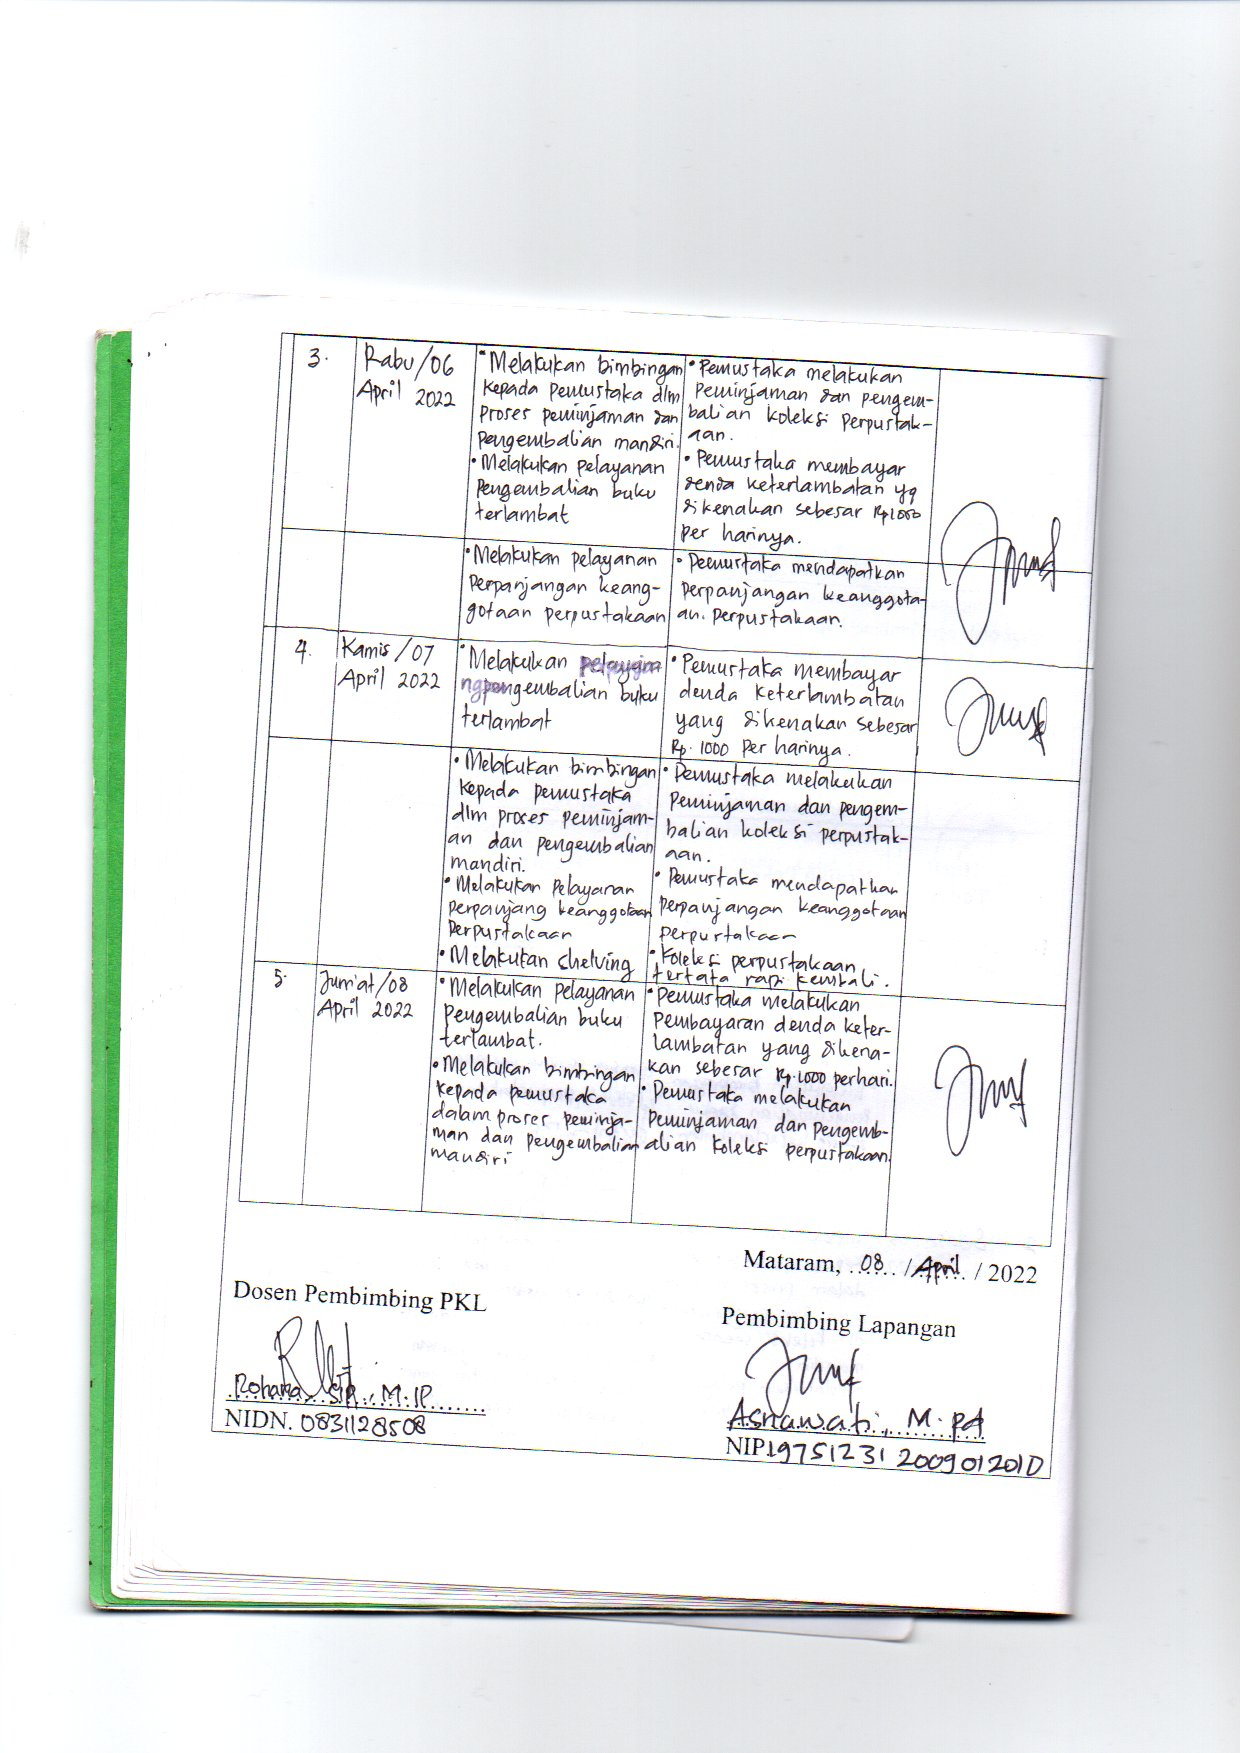 3.
Rabu/06
April 2022
• Melakukan bimbingan
kepada pemustaka dlm
proses peminjaman dan
pengembalian mandiri.
• Melakukan pelayanan
pengembalian buku
terlambat
• Pemustaka melakukan
peminjaman dan pengem-
balian koleksi perpustak-
aan.
• Pemustaka membayar
denda keterlambatan yg
dikenakan sebesar Rp1000
per harinya.
• Melakukan pelayanan
perpanjangan keang-
gotaan perpustakaan
• Pemustaka mendapatkan
perpanjangan keanggota-
an. perpustakaan.
4.
Kamis/07
April 2022
• Melakukan
pengembalian buku
terlambat
• Pemustaka membayar
denda keterlambatan
yang dikenakan sebesar
Rp. 1000 per harinya.
• Melakukan bimbingan
kepada pemustaka
dlm proses peminjam-
an dan pengembalian
mandiri.
• Melakukan pelayanan
perpanjang keanggotaan
perpustakaan
• Melakukan shelving
• Pemustaka melakukan
peminjaman dan pengem-
balian koleksi perpustak-
aan.
• Pemustaka mendapatkan
perpanjangan keanggotaan
perpustakaan
• Koleksi perpustakaan
tertata rapi kembali.
5.
Jum'at/08
April 2022
• Melakukan pelayanan
pengembalian buku
terlambat.
• Melakukan bimbingan
kepada pemustaka
dalam proses peminja-
man dan pengembalian
mandiri
• Pemustaka melakukan
pembayaran denda keter-
lambatan yang dikena-
kan sebesar Rp.1000 perhari.
• Pemustaka melakukan
peminjaman dan pengemb-
alian koleksi perpustakaan.
Mataram, 08 / April / 2022
Dosen Pembimbing PKL
Rohana, SIP., M.IP
NIDN. 0831128508
Pembimbing Lapangan
Asnawati, M. PA
NIP19751231 200901 2010